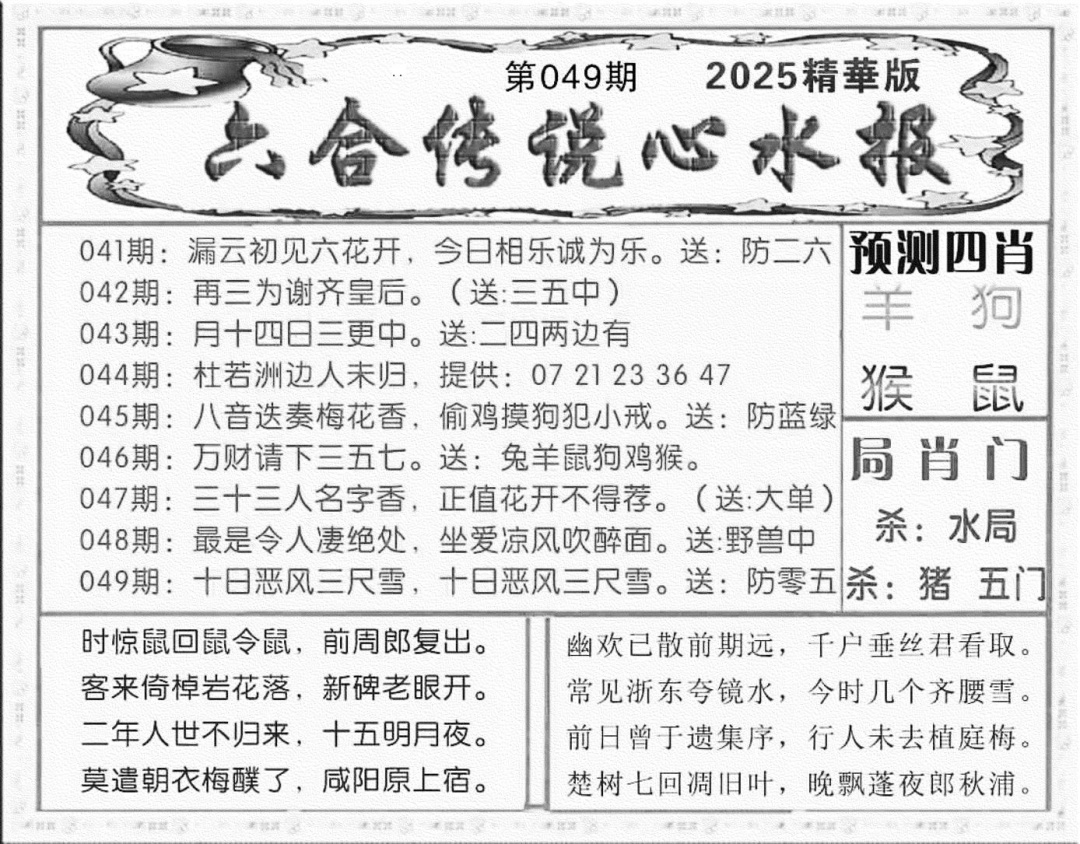 第049期 2025精華版
六合传说心水报
041期：漏云初见六花开，今日相乐诚为乐。送：防二六
042期：再三为谢齐皇后。（送:三五中）
043期：月十四日三更中。送:二四两边有
044期：杜若洲边人未归，提供：07 21 23 36 47
045期：八音迭奏梅花香，偷鸡摸狗犯小戒。送：防蓝绿
046期：万财请下三五七。送：兔羊鼠狗鸡猴。
047期：三十三人名字香，正值花开不得荐。（送:大单）
048期：最是令人凄绝处，坐爱凉风吹醉面。送:野兽中
049期：十日恶风三尺雪，十日恶风三尺雪。送：防零五
预测四肖
羊 狗
猴 鼠
局肖门
杀：水局
杀：猪 五门
时惊鼠回鼠令鼠，前周郎复出。
客来倚棹岩花落，新碑老眼开。
二年人世不归来，十五明月夜。
莫遣朝衣梅醭了，咸阳原上宿。
幽欢已散前期远，千户垂丝君看取。
常见浙东夸镜水，今时几个齐腰雪。
前日曾于遗集序，行人未去植庭梅。
楚树七回凋旧叶，晚飘蓬夜郎秋浦。